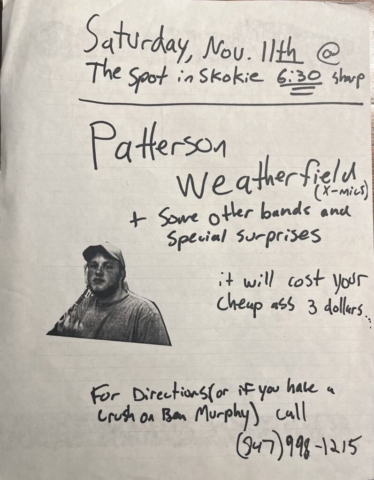 Saturday, Nov. 11th @
The Spot in Skokie 6:30 sharp
Patterson
Weatherfield
(X-mics)
+ some other bands and
special surprises
it will cost your
cheap ass 3 dollars...
For Directions (or if you have a
crush on Ben Murphy) call
(847) 998-1215